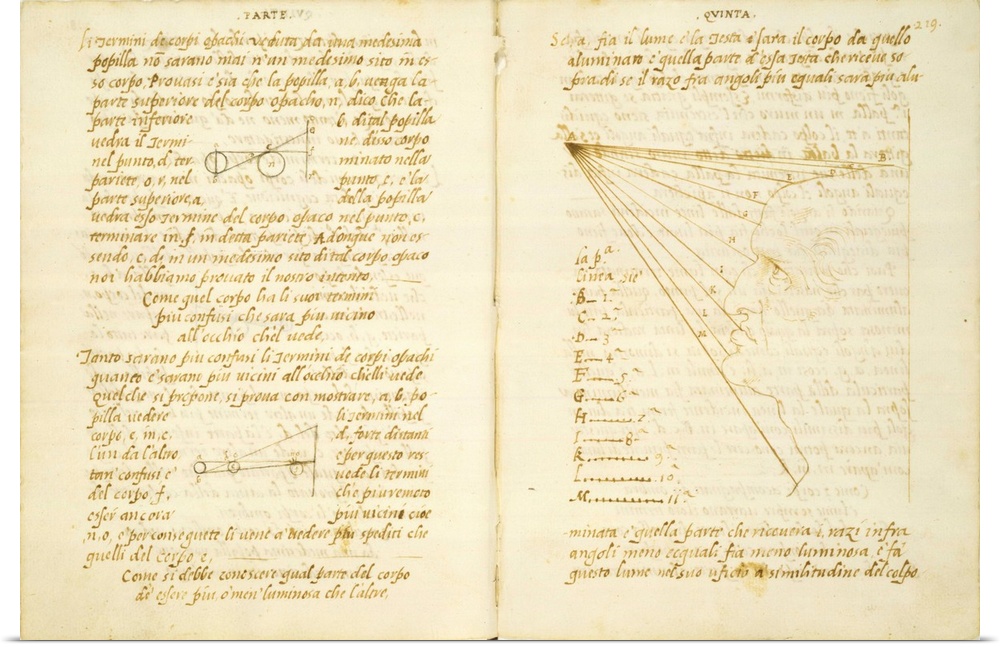 .PARTE.
Li Termini de corpi opachi veduta da una medesima
popilla nõ sarano mai n'un medesimo sito in es-
so corpo. Provasi e sia che la popilla, a, b, venga la
parte superiore del corpo opacho, n, dico che la
parte inferiore b, di tal popilla
vedra il Termi- ne, di sso corpo
nel punto, d, ter minato nella
pariete, o, r, nel punto, e, e la
parte superiore, a, della popilla
vedra esso Termine del corpo, opaco nel punto, c,
terminare in, f, in detta pariete, Adonque non es-
sendo, c, d, in un medesimo sito di tal corpo, opaco
noi habbiamo provato il nostro intento.
Come quel corpo ha li suoi termini
piu confusi che sara piu vicino
all'occhio che'l vede,
Tanto sarano piu confusi li Termini de corpi opachi
quanto e sarani piu vicini all'ochio chelli vede
Quel che si propone, si prova con mostrare, a, b, po
pilla vedere li Termini nel
corpo, c, in, c, d, forte distanti
l'un da l'altro e per questo res-
tan confusi e vede li termini
del corpo, f, che piu remoto
esser ancora piu vicini cioe
n, o, e per consequete li viene a vedere piu spediti che
quelli del Corpo, c,
Come si debbe conoscere qual parte del corpo
de essere piu, o men' luminosa che l'altre,
.QVINTA.
219.
Se, a, fia il lume e la Testa e sara il corpo da quello
aluminato e quella parte d'essa Testa che riceve so
pra di se il razo fra angoli piu equali sara piu alu-
A
B
E
F
G
H
I
K
L
M
la pª
linea sie
B 1ª
C 2ª
D 3ª
E 4ª
F 5ª
G 6ª
H 7ª
I 8ª
K 9ª
L 10.
M 11ª
minata e quella parte che ricevera i, razi infra
angoli meno ecquali, fia meno luminosa, e fa
questo lume nel suo ufitio a similitudine del colpo